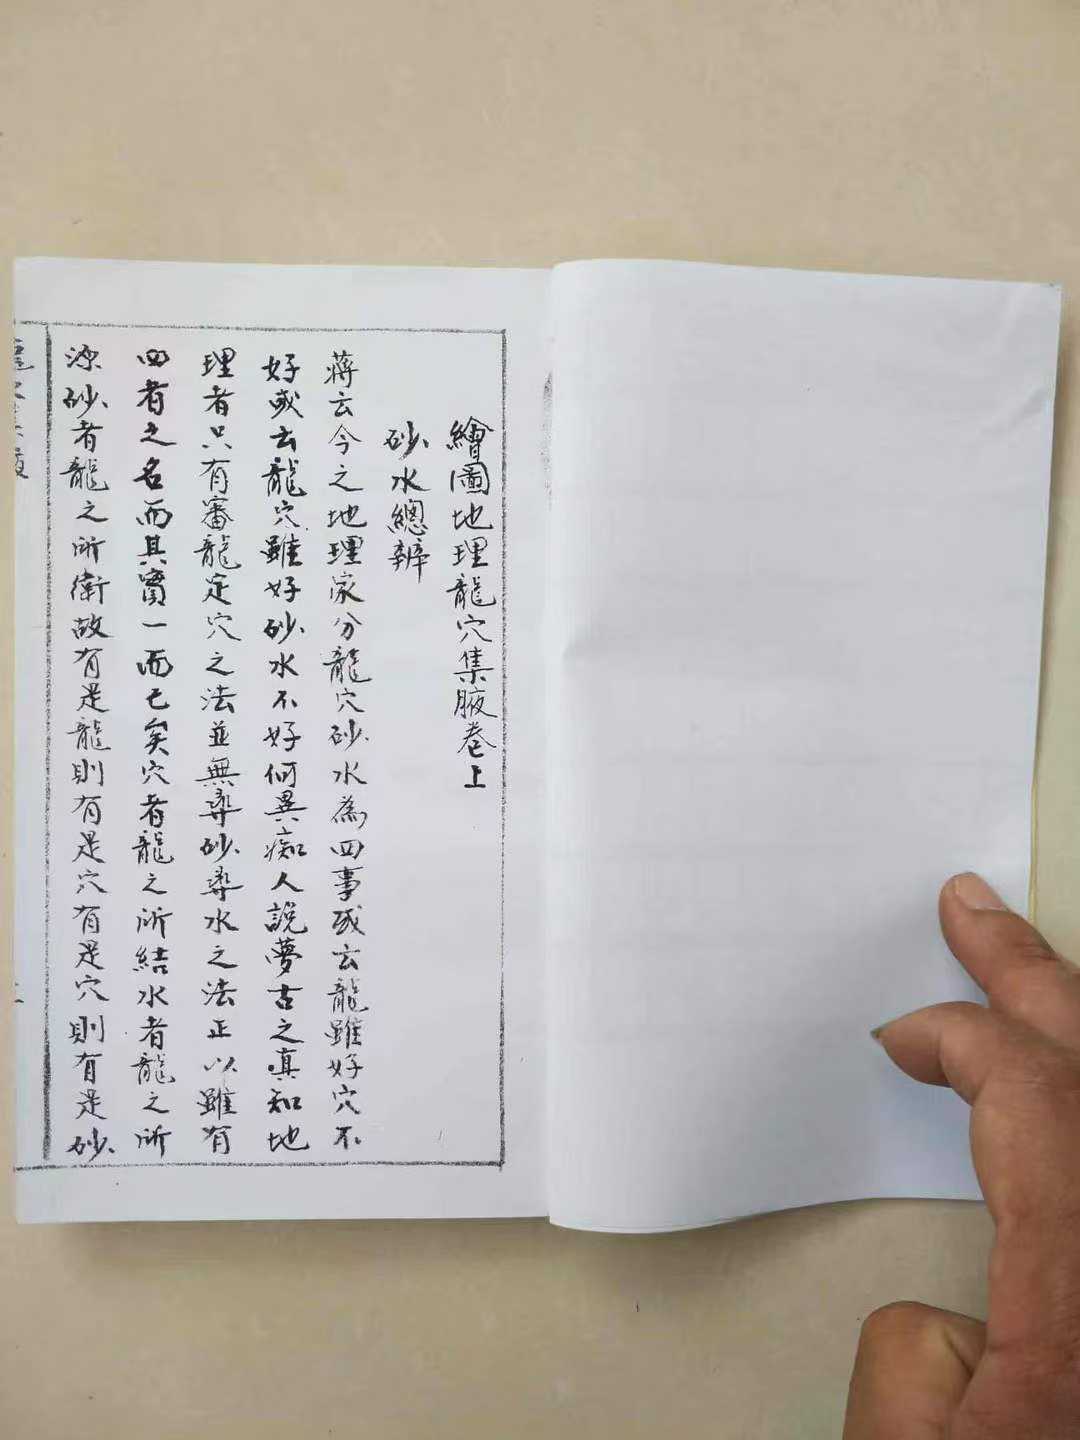 繪圖地理龍穴集腋卷上
砂水總辨
蔣云今之地理家分龍穴砂水為四事或云龍雖好穴不
好或云龍穴雖好砂水不好何異痴人說夢古之真知地
理者只有審龍定穴之法並無尋砂尋水之法正以雖有
四者之名而其實一而已矣穴者龍之所結水者龍之所
源砂者龍之所衛故有是龍則有是穴有是穴則有是砂